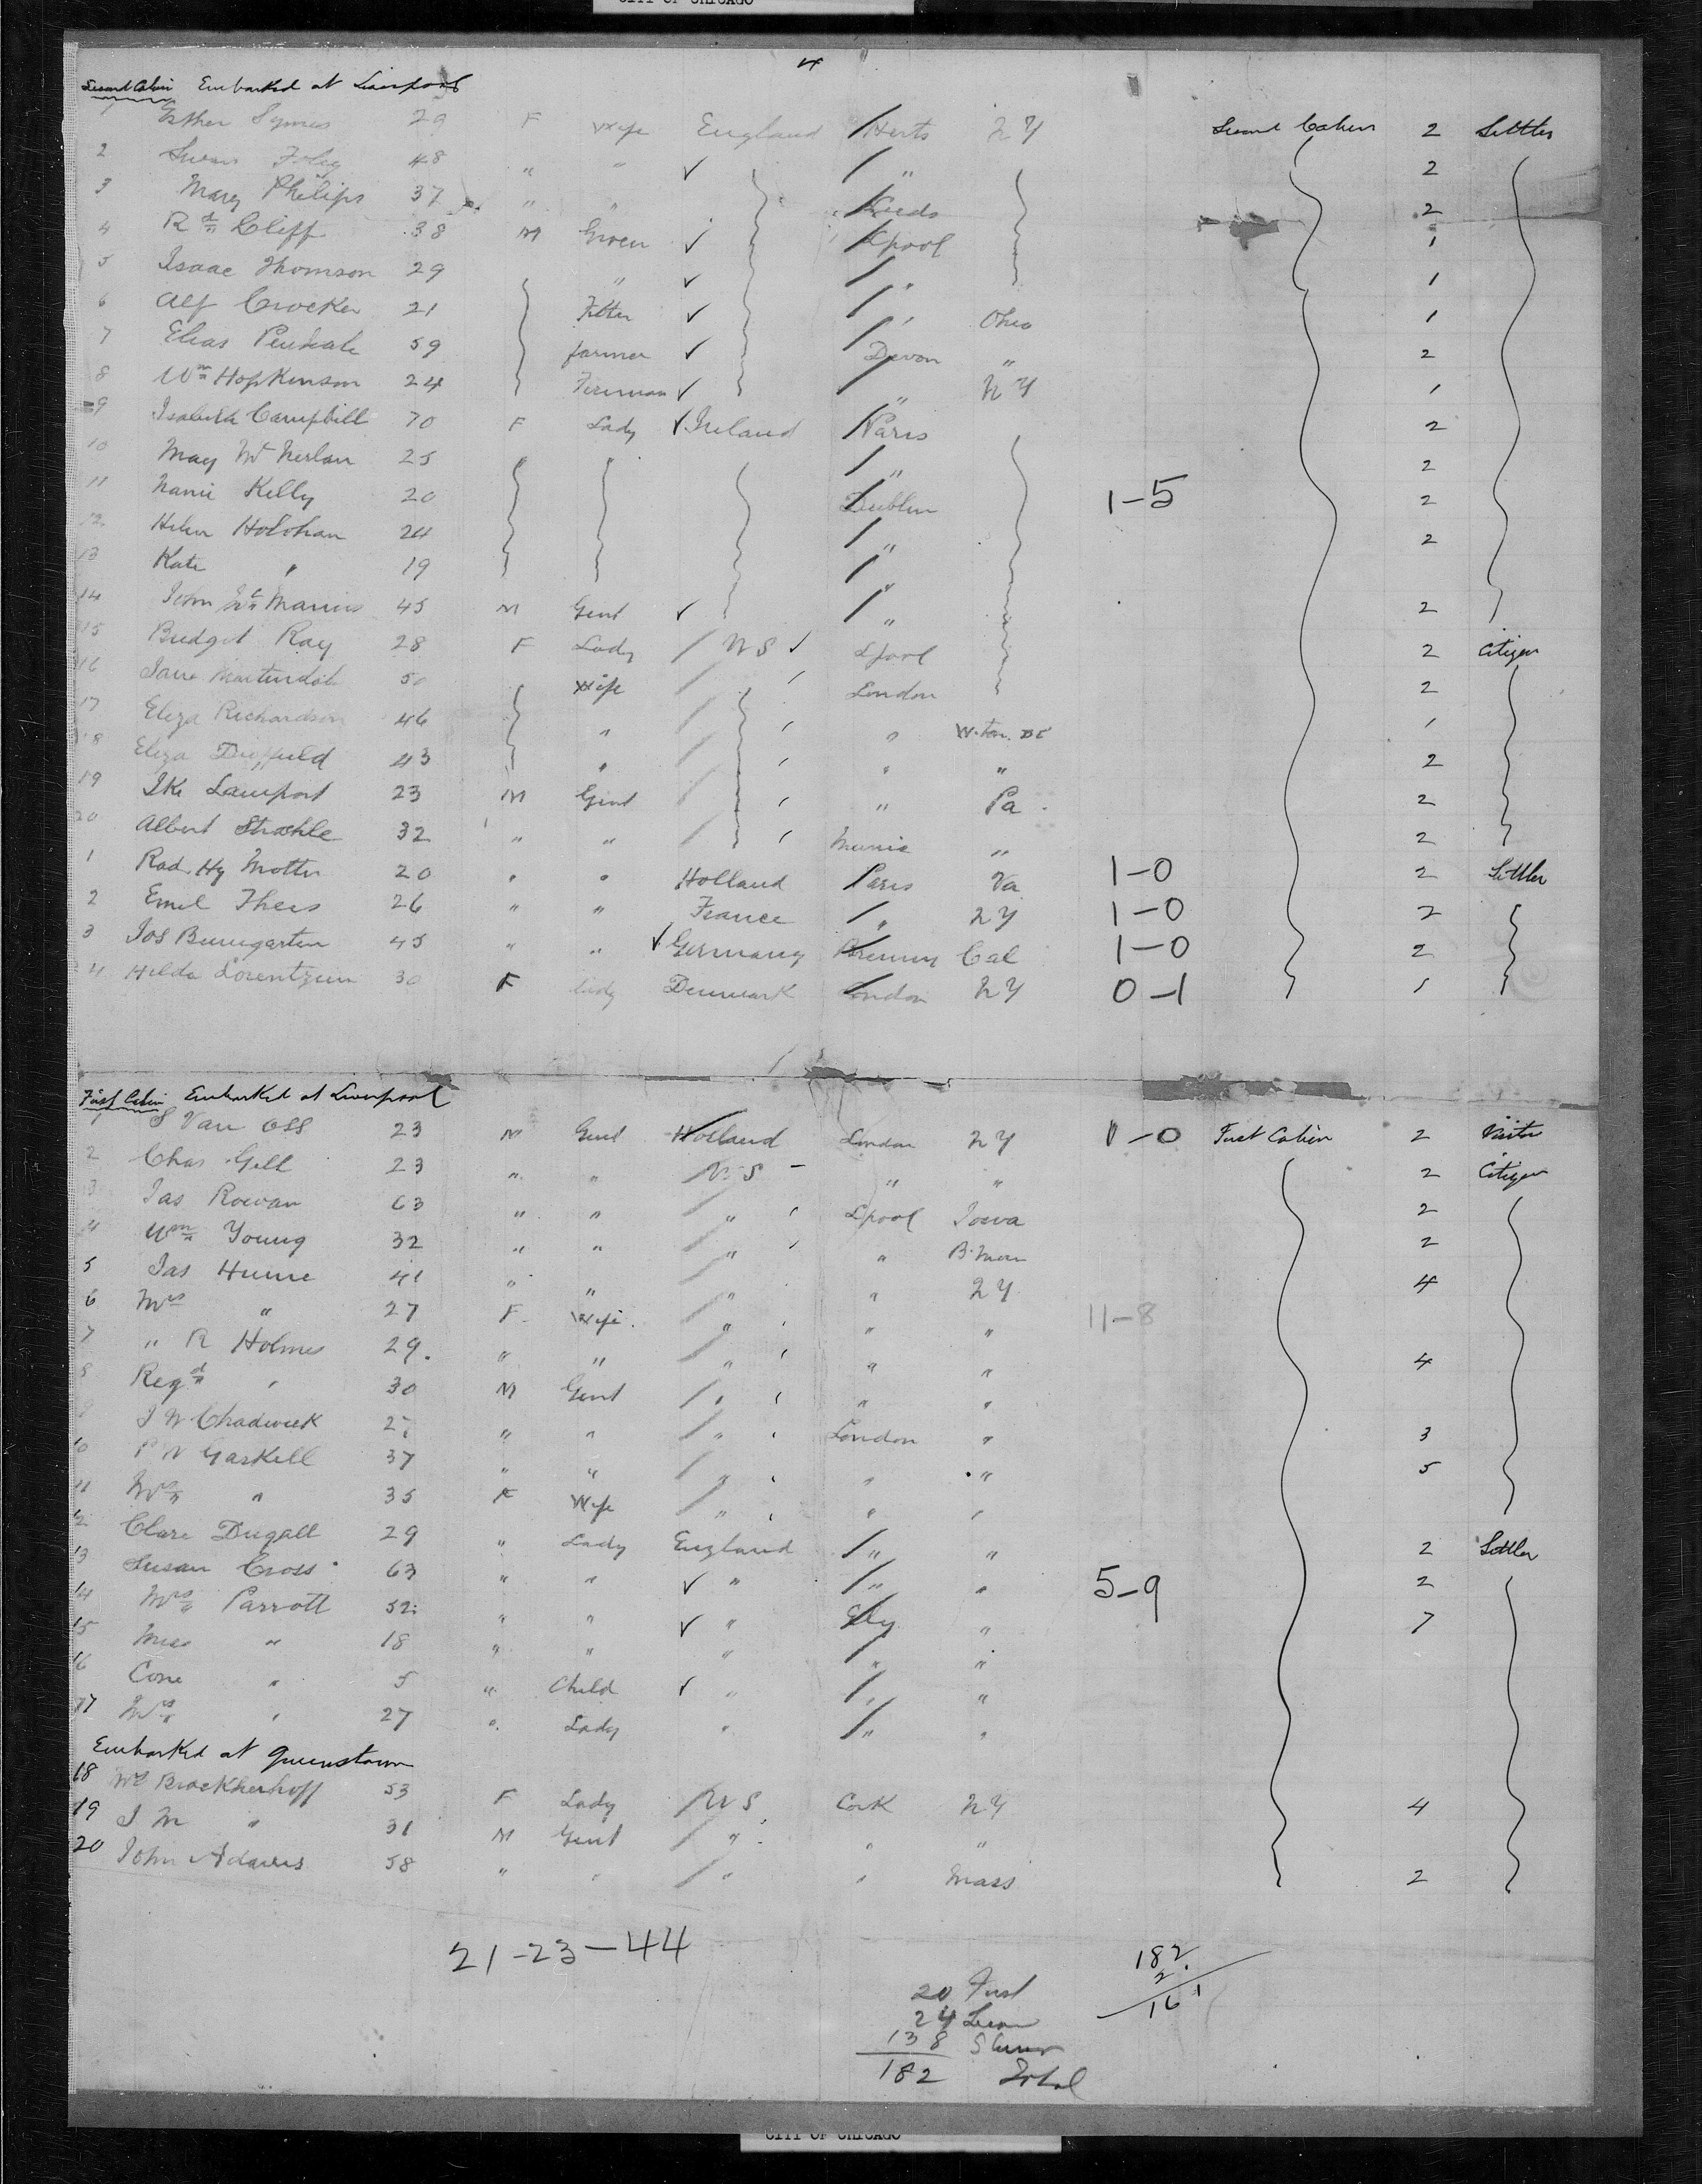 CITY OF CHICAGO
4
Second Cabin Embarked at Liverpool
1 Esther Symes 29 F Wife England Herts NY Second Cabin 2 Settler
2 Susan Foley 48 " " ✓ " 2
3 Mary Philips 37 " " Leeds 2
4 Rd Cliff 38 M Grocer ✓ Lpool 1
5 Isaac Thomson 29 " ✓ " 1
6 Alf Crocker 21 Fitter ✓ " Ohio 1
7 Elias 59 farmer ✓ Devon " 2
8 Wm Hopkinson 24 Fireman ✓ " NY 1
9 Isabella Campbell 70 F Lady ✓ Ireland Paris 2
10 May 25 " 2
11 Nanie Kelly 20 Dublin 1-5 2
12 Helen Holohan 24 " 2
13 Kate " 19 "
14 John Mc Manus 45 M Gent ✓ " 2
15 Bridget Ray 28 F Lady U S ✓ Lpool 2 Citizen
16 Jane Martindale 50 Wife London 2
17 Eliza Richardson 46 " " W.ton. DC 1
18 Eliza Duffield 43 " " " 2
19 Ike Lamport 23 M Gent " Pa 2
20 Albert Straehle 32 " " Munic " 2
1 Rad. Hy Motter 20 " " Holland Paris Va 1-0 2 Settler
2 Emil Theis 26 " " France " NY 1-0 2
3 Jos Bumgarten 45 " " ✓ Germany Cal 1-0 2
4 Hilda Lorentzen 30 F lady Denmark London NY 0-1 1
First Cabin Embarked at Liverpool
1 S Van Oss 23 M Gent Holland London NY 1-0 First Cabin 2 Visitor
2 Chas Gell 23 " " U S " " 2 Citizen
3 Jas Rowan 63 " " " Lpool Iowa 2
4 Wm Young 32 " " " " 2
5 Jas Hume 41 " " " " NY 4
6 Mrs " 27 F Wife " " " 11-8
7 " R Holmes 29 " " " " " 4
8 Regd " 30 M Gent " " "
9 J W Chadwick " " " London " 3
10 P W Gaskell 37 " " " " " 5
11 Mrs " 35 F Wife " " "
12 Clara Dugall 29 " Lady England " " 2 Settler
13 Susan Cross 63 " " ✓ " " " 5-9 2
14 Mrs Parrott 52 " " ✓ " " 7
15 Miss " 18 " " " " "
16 " 5 " Child ✓ " " "
17 Mrs " 27 " Lady " " "
Embarked at Queenstown
18 Brockherhoff 53 F Lady U S Cork NY 4
19 J M " 31 M Gent " " "
20 John Adams 58 " " " " Mass 2
21-23-44
182
2
161
20 First
24 Secon
138 Steer
182 Total
CITY OF CHICAGO